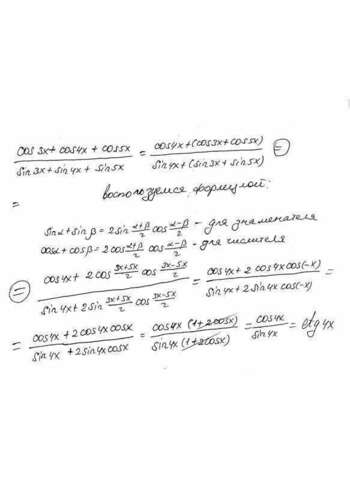 cos 3x + cos 4x + cos 5x / sin 3x + sin 4x + sin 5x = cos 4x + (cos 3x + cos 5x) / sin 4x + (sin 3x + sin 5x) =
= воспользуемся формулой:
sin α + sin β = 2 sin α+β/2 cos α-β/2 - для знаменателя
cos α + cos β = 2 cos α+β/2 cos α-β/2 - для числителя
= cos 4x + 2 cos 3x+5x/2 cos 3x-5x/2 / sin 4x + 2 sin 3x+5x/2 cos 3x-5x/2 = cos 4x + 2 cos 4x cos(-x) / sin 4x + 2 sin 4x cos(-x) =
= cos 4x + 2 cos 4x cos x / sin 4x + 2 sin 4x cos x = cos 4x (1+2cosx) / sin 4x (1+2cosx) = cos 4x / sin 4x = ctg 4x